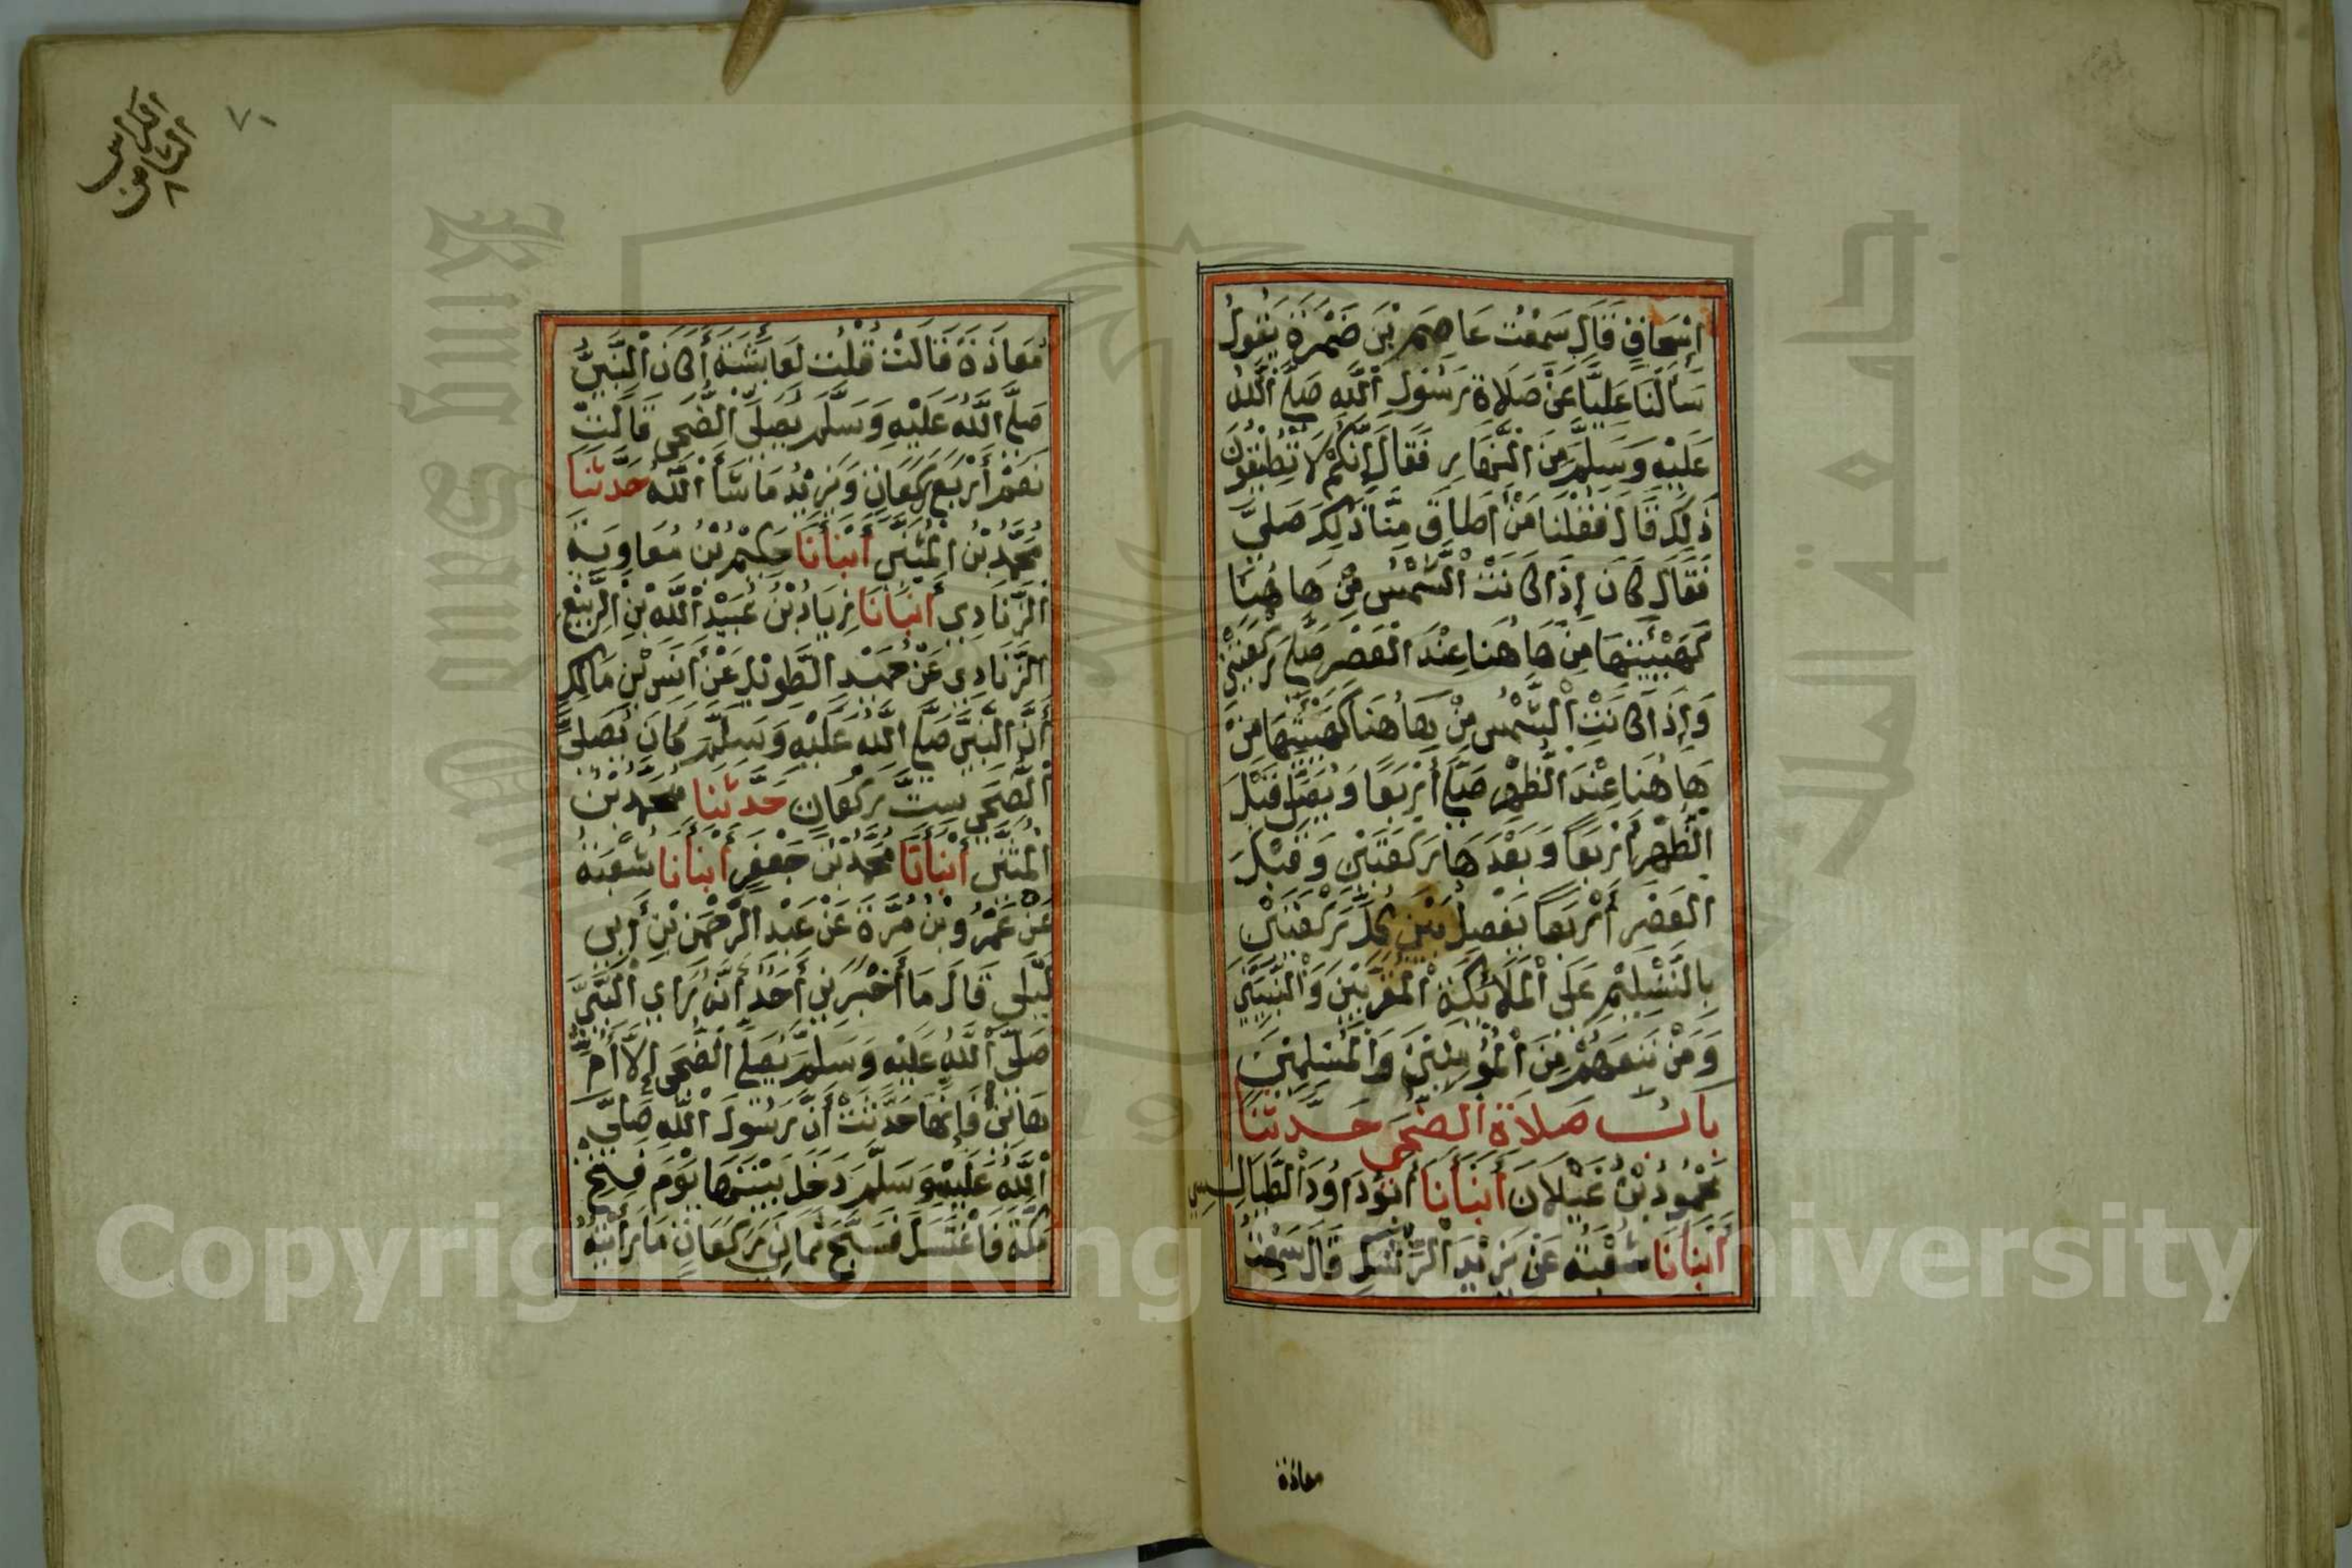 إِسْحَاقٍ قَالَ سَمِعْتُ عَاصِمَ بْنَ ضَمْرَةَ يَقُولُ
سَأَلْنَا عَلِيًّا عَنْ صَلَاةِ رَسُولِ اللَّهِ صَلَّى اللَّهُ
عَلَيْهِ وَسَلَّمَ مِنَ النَّهَارِ فَقَالَ إِنَّكُمْ لَا تُطِيقُونَ
ذَلِكَ قَالَ فَقُلْنَا مَنْ أَطَاقَ مِنَّا ذَلِكَ صَلَّى
فَقَالَ كَانَ إِذَا كَانَتْ الشَّمْسُ مِنْ هَاهُنَا
كَهَيْئَتِهَا مِنْ هَاهُنَا عِنْدَ الْعَصْرِ صَلَّى رَكْعَتَيْنِ
وَإِذَا كَانَتِ الشَّمْسُ مِنْ هَاهُنَا كَهَيْئَتِهَا مِنْ
هَاهُنَا عِنْدَ الظُّهْرِ صَلَّى أَرْبَعًا وَيُصَلِّي قَبْلَ
الظُّهْرِ أَرْبَعًا وَبَعْدَهَا رَكْعَتَيْنِ وَقَبْلَ
الْعَصْرِ أَرْبَعًا يَفْصِلُ بَيْنَ كُلِّ رَكْعَتَيْنِ
بِالتَّسْلِيْمِ عَلَى الْمَلَائِكَةِ الْمُقَرَّبِيْنَ وَالنَّبِيِّيْنَ
وَمَنْ تَبِعَهُمْ مِنَ الْمُؤْمِنِيْنَ وَالْمُسْلِمِيْنَ
بَابُ صَلَاةِ الضُّحَى حَدَّثَنَا
مَحْمُودُ بْنُ غَيْلَانَ أَنْبَأَنَا أَبُو دَاوُدَ الطَّيَالِسِي
أَنْبَأَنَا شُعْبَةُ عَنْ يَزِيْدَ الرِّشْكِ قَالَ سَمِعْتُ
معاذة
الكراس
الثامن
٨
٧١
مُعَاذَةَ قَالَتْ قُلْتُ لِعَائِشَةَ أَكَانَ النَّبِيُّ
صَلَّى اللَّهُ عَلَيْهِ وَسَلَّمَ يُصَلِّي الضُّحَى قَالَتْ
نَعَمْ أَرْبَعَ رَكَعَاتٍ وَيَزِيْدُ مَا شَاْ اللَّهُ حَدَّثَنَا
مُحَمَّدُ بْنُ الْمُثَنَّى أَنْبَأَنَا حَكِيْمُ بْنُ مُعَاوِيَةَ
الزِّيَادِي أَنْبَأَنَا زِيَادُ بْنُ عُبَيْدِ اللَّهِ بْنِ الرَّبِيْعِ
الزِّيَادِي عَنْ حُمَيْدِ الطَّوِيْلِ عَنْ أَنَسِ بْنِ مَالِكٍ
أَنَّ النَّبِيَّ صَلَّى اللَّهُ عَلَيْهِ وَسَلَّمَ كَانَ يُصَلِّي
الضُّحَى سِتَّ رَكَعَاتٍ حَدَّثَنَا مُحَمَّدُ بْنُ
الْمُثَنَّى أَنْبَأَنَا مُحَمَّدُ بْنُ جَعْفَرٍ أَنْبَأَنَا شُعْبَةُ
عَنْ عَمْرُو بْنِ مُرَّةَ عَنْ عَبْدِ الرَّحْمَنِ بْنِ أَبِي
لَيْلَى قَالَ مَا أَخْبَرَنِي أَحَدٌ أَنَّهُ رَأَى النَّبِيَّ
صَلَّى اللَّهُ عَلَيْهِ وَسَلَّمَ يُصَلِّي الضُّحَى إِلَّا أُمُّ
هَانِئٍ فَإِنَّهَا حَدَّثَتْ أَنَّ رَسُولَ اللَّهِ صَلَّى
اللَّهُ عَلَيْهِ وَسَلَّمَ دَخَلَ بَيْتَهَا يَوْمَ فَتْحِ
مَكَّةَ فَاغْتَسَلَ فَسَبَّحَ ثَمَانِي رَكَعَاتٍ مَا رَأَيْتُهُ
Copyright © King Saud University
King Saud University
جامعة الملك